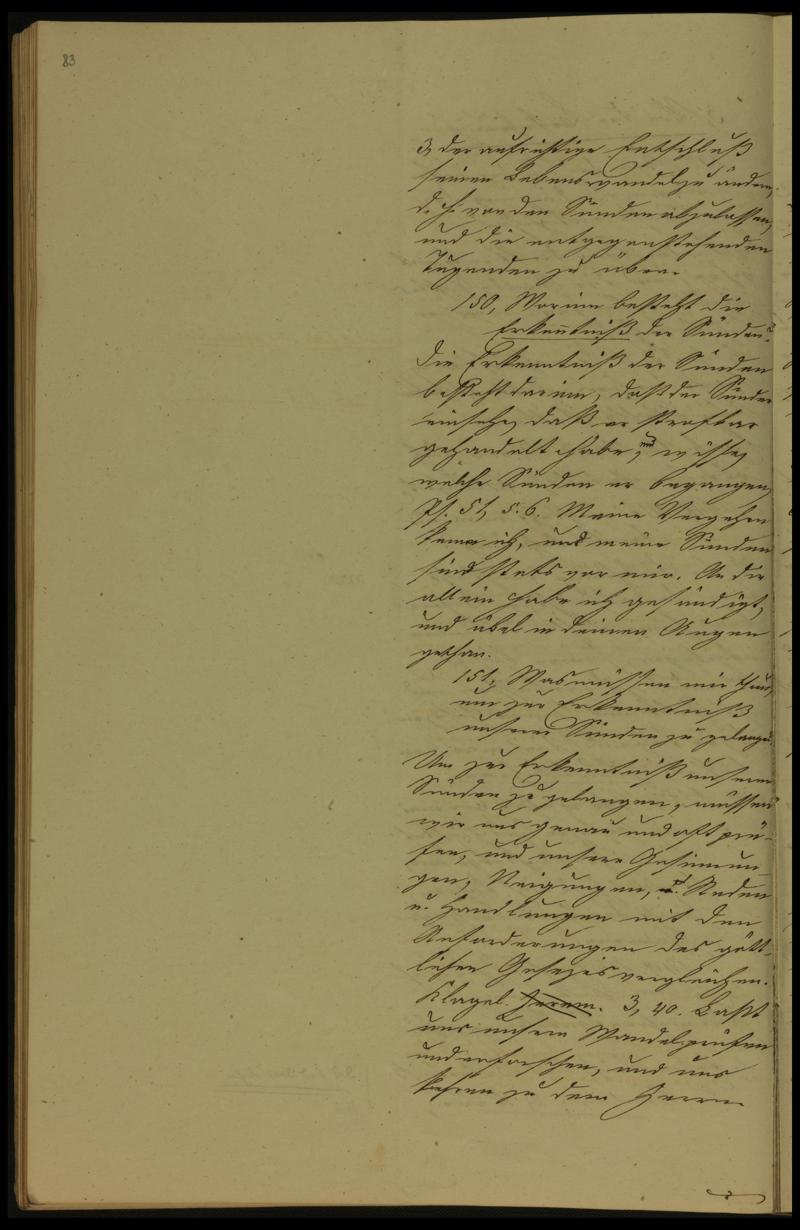 83
3, der aufrichtige Entschluß
seinen Lebenswandel zu ändern,
d. h. von den Sünden abzulassen,
und die entgegenstehenden
Tugenden zu üben.
150, Worinn besteht die
Erkenntniß der Sünden?
Die Erkenntniß der Sünden
besteht darinn, daß der Sünder
einsehe, daß er strafbar
gehandelt habe, und wisse,
welche Sünden er begangen,
Ps. 51, 5. 6. Meine Vergehen
kenne ich, und meine Sünden
sind stets vor mir. An dir
allein habe ich gesündigt,
und übel in deinen Augen
gethan.
151, Was müssen wir thun,
um zur Erkenntniß
unserer Sünden zu gelangen?
Um zur Erkenntniß unserer
Sünden zu gelangen, müssen
wir uns genau und oft prü-
fen, und unsere Gesinnun-
gen, Neigungen, Reden
u. Handlungen mit den
Anforderungen des gött-
lichen Gesezes vergleichen.
Klagel. Jerem. 3, 40. Laßt
uns unsern Wandel prüfen
und erforschen, und uns
kehren zu dem Herrn.